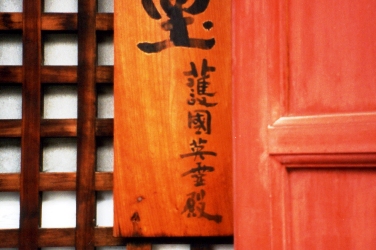 護國英霊殿